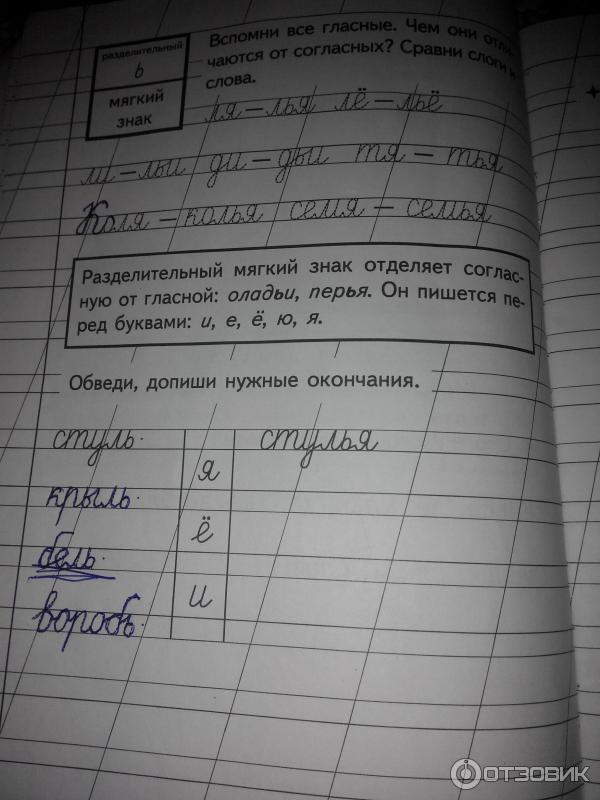 разделительный
ь
мягкий
знак
Вспомни все гласные. Чем они отли-
чаются от согласных? Сравни слоги и
слова.
ля – лья лё – льё
ли – льи ди – дьи тя – тья
Коля – колья семя – семья
Разделительный мягкий знак отделяет соглас-
ную от гласной: оладьи, перья. Он пишется пе-
ред буквами: и, е, ё, ю, я.
Обведи, допиши нужные окончания.
стуль. стулья
я
крыль.
ё
бель.
и
воробь.
ОТЗОВИК